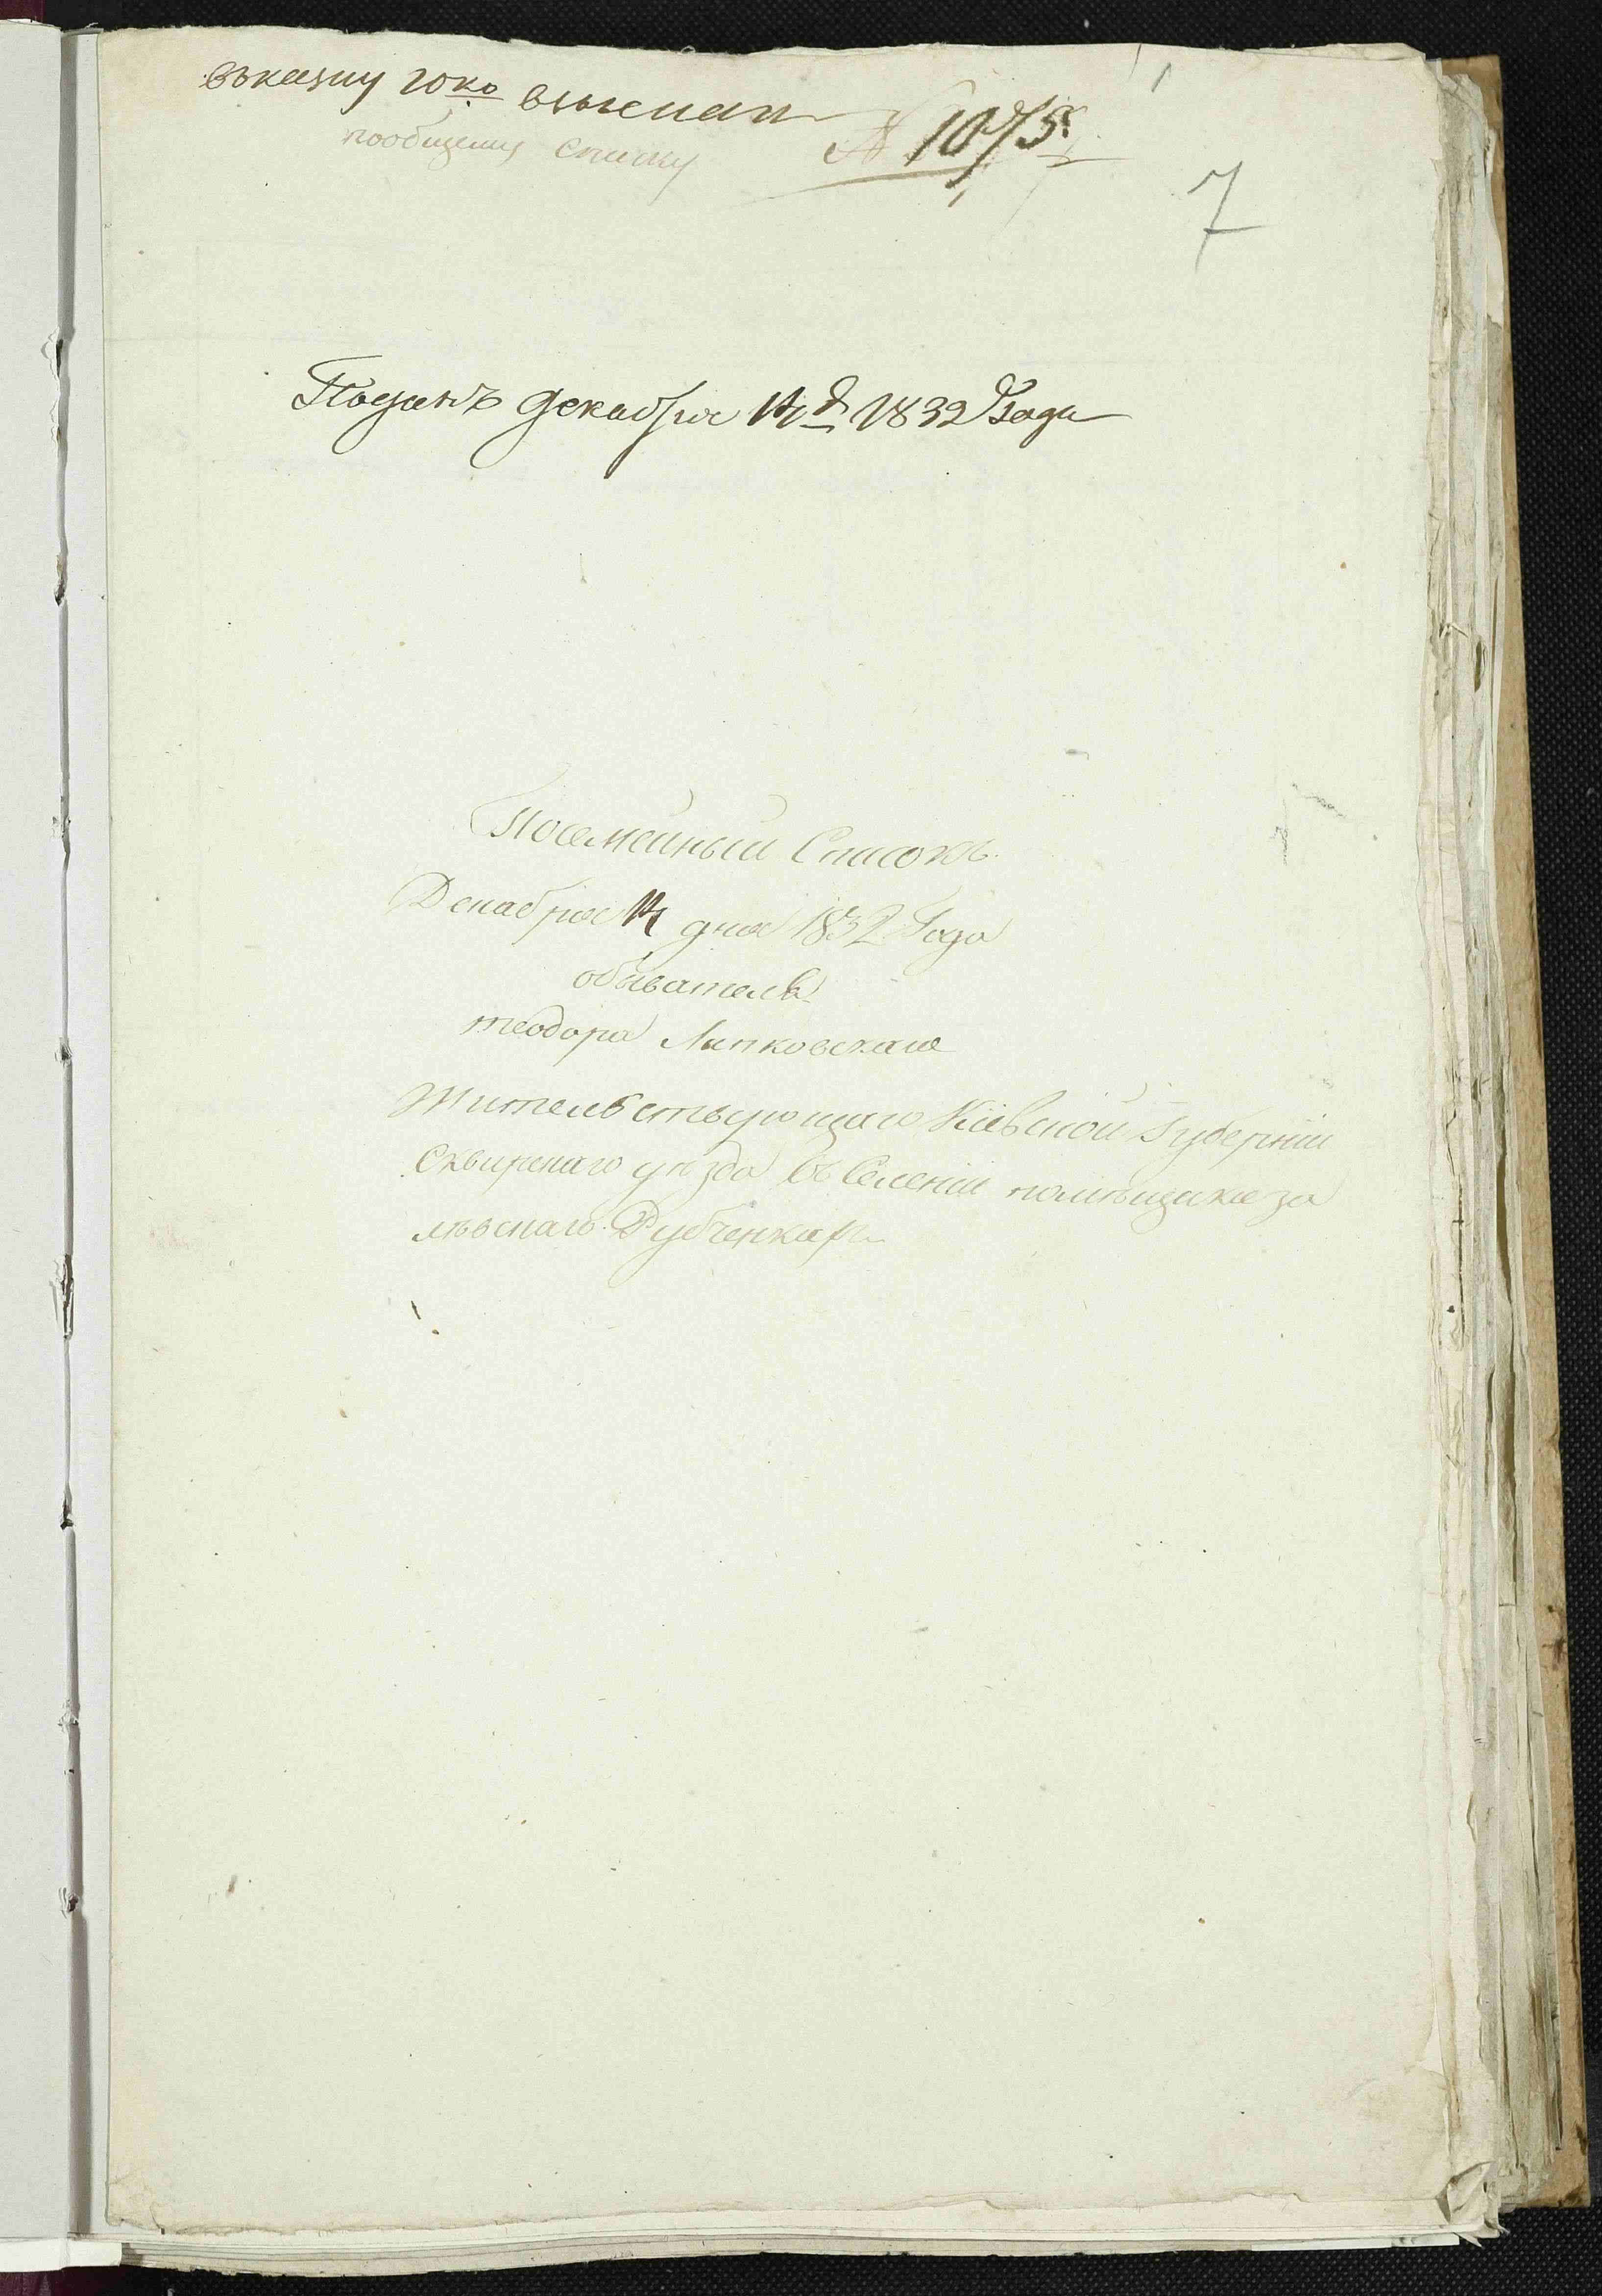 въказну
пообщему списку № 1075
7
Поданъ декабря 14 д 1832 Года
Посемейный Списокъ
Декабря 14 дня 1832 Года
обывателя
теодора Липковскаго
Жительствующаго Кіевской Губерніи
Сквирскаго уѣзда въ Селеніи помѣщика за
лѣвскаго Дубченкахъ